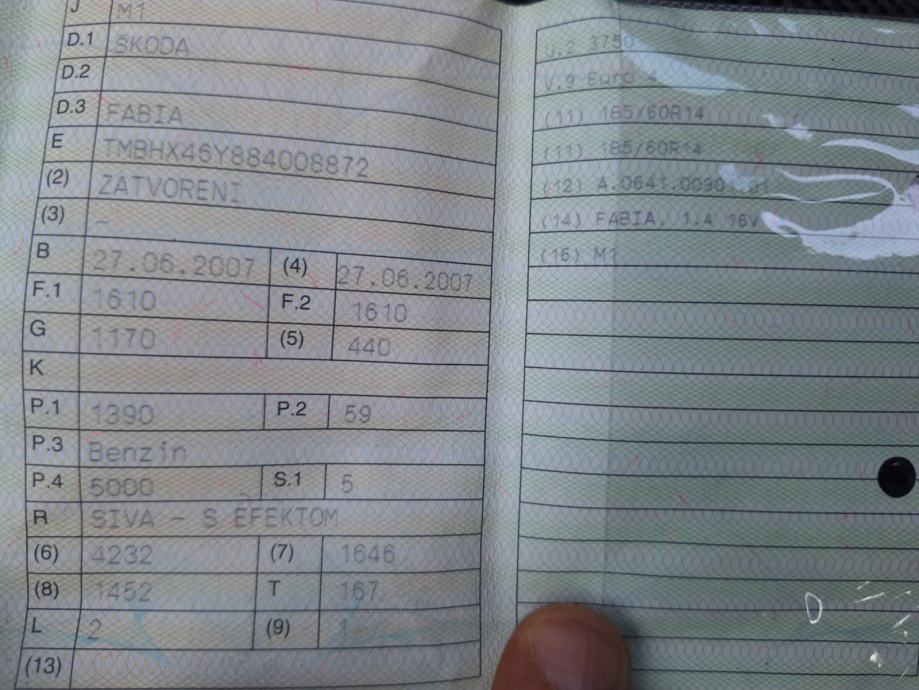 J M1
D.1 ŠKODA
D.2
D.3 FABIA
E TMBHX46Y884008872
(2) ZATVORENI
(3) –
B 27.06.2007 (4) 27.06.2007
F.1 1610 F.2 1610
G 1170 (5) 440
K
P.1 1390 P.2 59
P.3 Benzin
P.4 5000 S.1 5
R SIVA – S EFEKTOM
(6) 4232 (7) 1646
(8) 1452 T 167
L 2 (9) 1
(13)
U.2 3750
V.9 Euro 4
(11) 185/60R14
(11) 185/60R14
(12) A.0641.00901.01
(14) FABIA, 1.4 16V
(16) M1